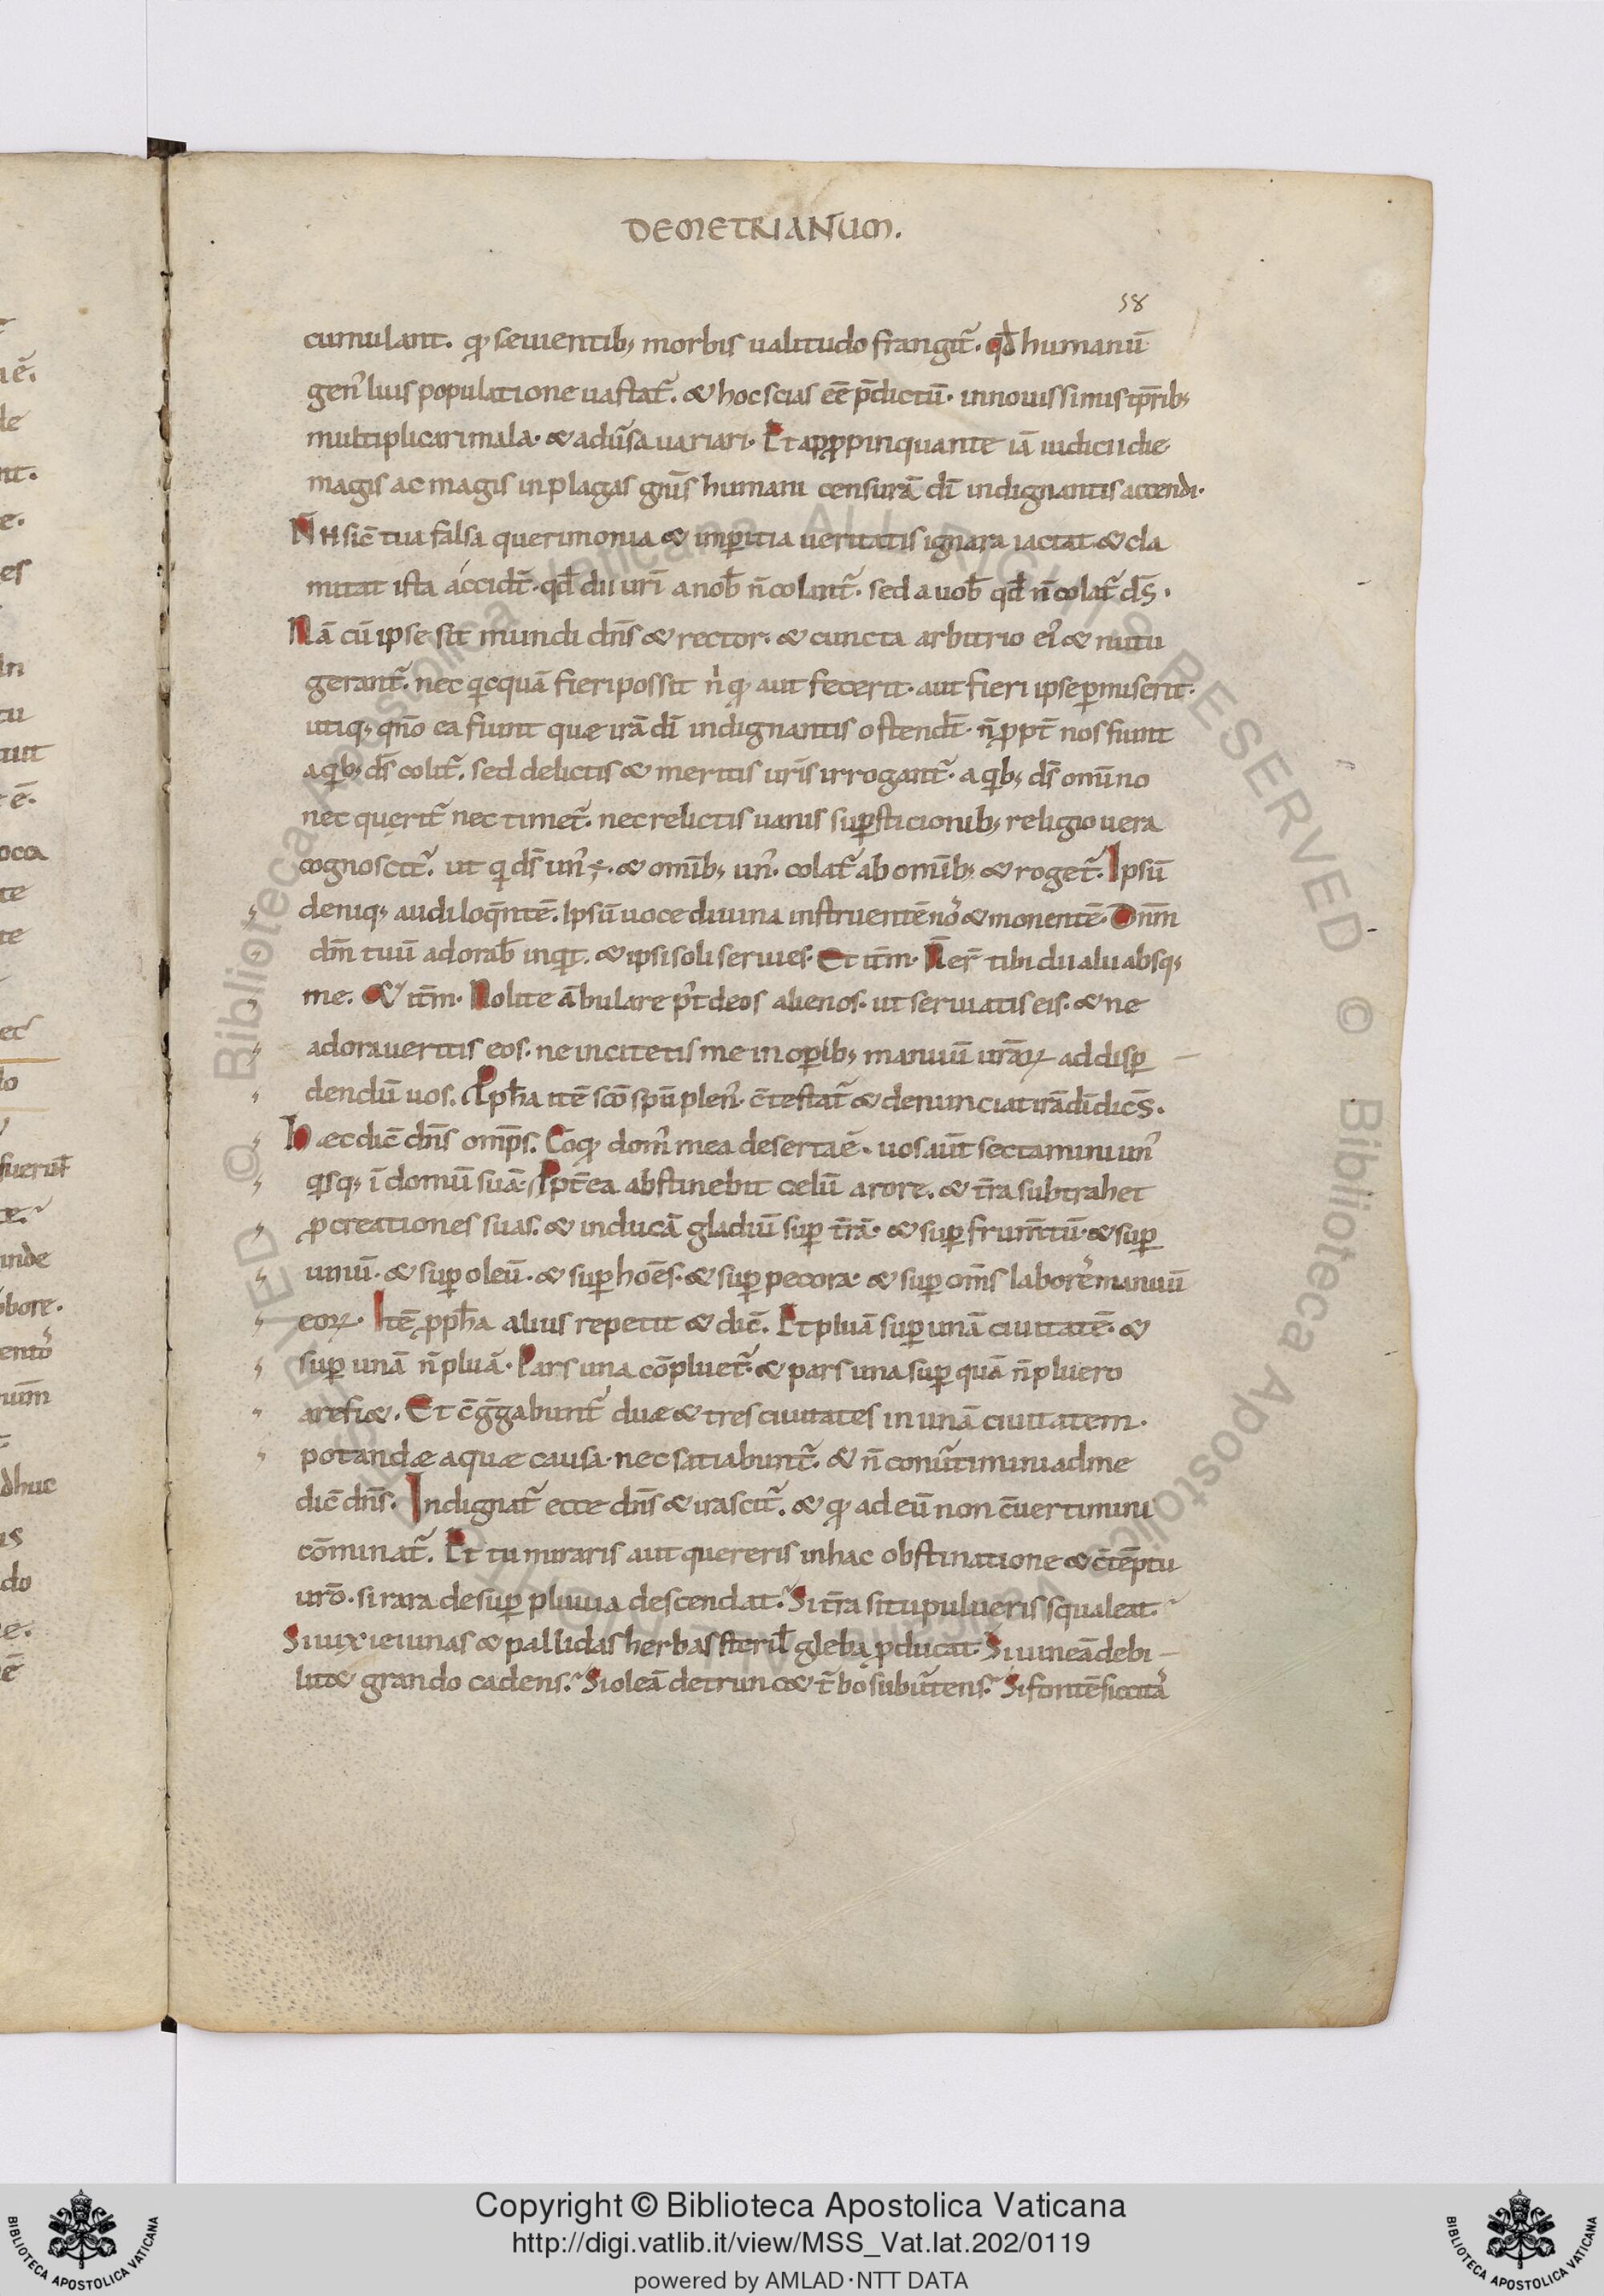 DEMETRIANUM.
58
cumulant. qđ seuientib; morbis ualitudo frangit᷑. qđ humanū
gen᾽ luis populatione uastat᷑. & hoc scias eē p̄dictū. in nouissimis tp̄rib;
multiplicari mala. & adūsa uariari. Et appropinquante iā iudicii die
magis ac magis in plagas gn̄is humani censurā dī indignantis accendi.
N̄ H sic̄ tua falsa querimonia & imperitia ueritatis ignara iactat & cla
mitat ista accidt̄. qđ dii urī a nob̄ n̄ colunt᷑. sed a uob̄ qđ n̄ colat᷑ ds̄.
Nā cū ipse sit mundi dn̄s & rector. & cuncta arbitrio ei᾽ & nutu
gerant᷑. nec qicquā fieri possit n̓ qđ aut fecerit. aut fieri ipse permiserit.
utiq; qn̄o ea fiunt quae irā dī indignantis ostendt̄. n̄ ꝓpt̄ nos fiunt
a qib; ds̄ colit᷑. sed delictis & meritis uris̄ irrogant᷑. a qib; ds̄ omnīno
nec querit᷑ nec timet᷑. nec relictis uanis superstitionib; religio uera
cognoscit᷑. ut qi ds̄ un᾽ ÷. & omīb; un᾽. colat᷑ ab omīb; & roget᷑. Ipsū
deniq; audi loq̄ntē. Ipsū uoce diuina instruentē no᾽ & monentē. Dn̄m
dm̄ tuū adorab̄ inqit. & ipsi soli seruies. Et itm̄. N̄ er̄ tibi dii alii absq;
me. & itm̄. Nolite ābulare p᾽t deos alienos. ut seruiatis eis. & ne
adoraueritis eos. ne incitetis me in operib; manuū urāꝝ ad disper
dendū uos. Ꝓph̄a itē sc̄o spū plen᾽. c̄testat᷑ & denunciat irā dī dic̄s.
Haec dic̄ dn̄s omp̄s. Eo qđ dom᾽ mea deserta ē. uos aūt sectamini un᾽
qisq; ī domū suā. Ꝓpt̄ea abstinebit celū a rore. & t̄ra subtrahet
ꝓcreationes suas. & inducā gladiū super t̄rā. & super frum̄tū. & super
uinū. & super oleū. & super hoēs. & super pecora. & super om̄s labores manuū
eoꝝ. Itē ꝓph̄a alius repetit & dic̄. Et pluā super unā ciuitatē. &
super unā n̄ pluā. Pars una cōpluet᷑. & pars una super quā n̄ pluero
arefi&. Et c̄ḡgabunt᷑ duae & tres ciuitates in unā ciuitatem.
potandae aquae causa. nec satiabunt᷑. & n̄ conūtimini ad me
dic̄ dn̄s. Indignat᷑ ecce dn̄s & irascit᷑. & qđ ad eū non c̄uertimini
cōminat᷑. Et tu miraris aut quereris in hac obstinatione & c̄tēptu
urō. si rara desuper pluuia descendat. Si t̄ra situ pulueris squaleat.
Si uix ieiunas & pallidas herbas steril̄ gleba ꝓducat. Si uineā debi
lit& grando cadens. Si oleā detrunc& t᷑bo subūtens. Si fontē siccita᾽
Copyright © Biblioteca Apostolica Vaticana
http://digi.vatlib.it/view/MSS_Vat.lat.202/0119
powered by AMLAD·NTT DATA